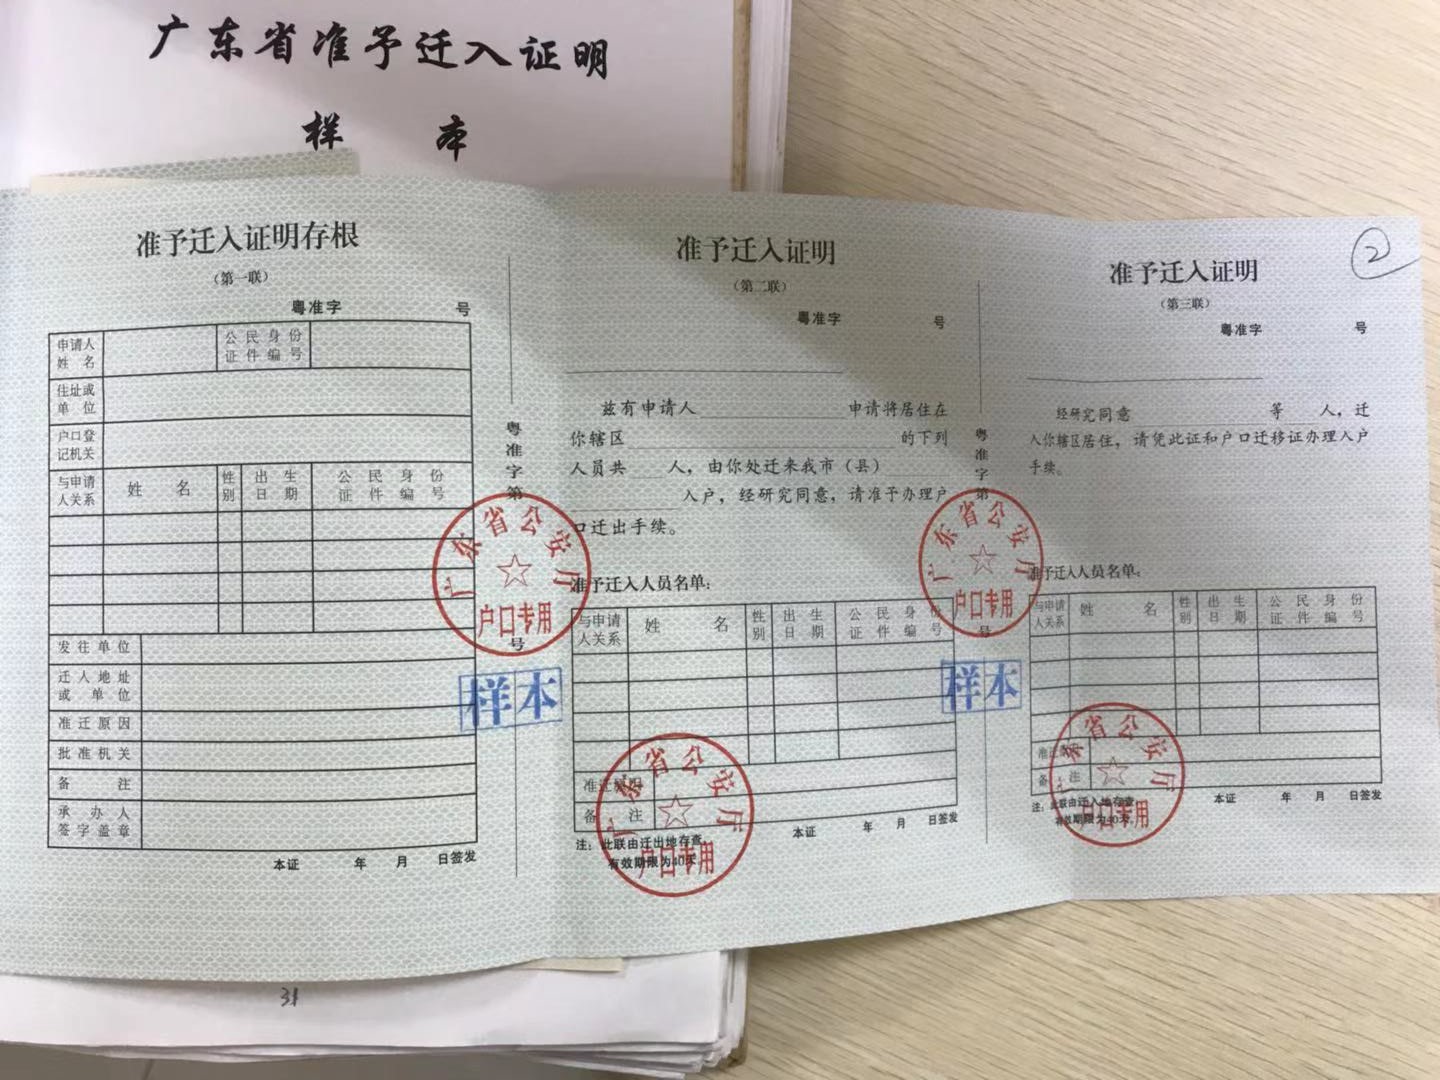 广东省准予迁入证明
样 本
准予迁入证明存根
（第一联）
粤准字 号
申请人姓名 公民身份证件编号
住址或单位
户口登记机关
与申请人关系 姓 名 性别 出生日期 公民身份证件编号
发往单位
迁入地址或单位
准迁原因
批准机关
备 注
承办人签字盖章
本证 年 月 日签发
粤准字第 号
广东省公安厅
户口专用
样本
准予迁入证明
（第二联）
粤准字 号
兹有申请人 申请将居住在
你辖区 的下列
人员共 人，由你处迁来我市（县）
入户，经研究同意，请准予办理户
口迁出手续。
准予迁入人员名单：
与申请人关系 姓 名 性别 出生日期 公民身份证件编号
准迁
备 注
本证 年 月 日签发
注：此联由迁出地存查
有效期限为40天
广东省公安厅
户口专用
粤准字第 号
广东省公安厅
户口专用
样本
②
准予迁入证明
（第三联）
粤准字 号
经研究同意 等 人，迁
入你辖区居住，请凭此证和户口迁移证办理入户
手续。
准予迁入人员名单：
与申请人关系 姓 名 性别 出生日期 公民身份证件编号
准迁
备 注
本证 年 月 日签发
注：此联由迁入地存查
有效期限为40天
广东省公安厅
户口专用
31